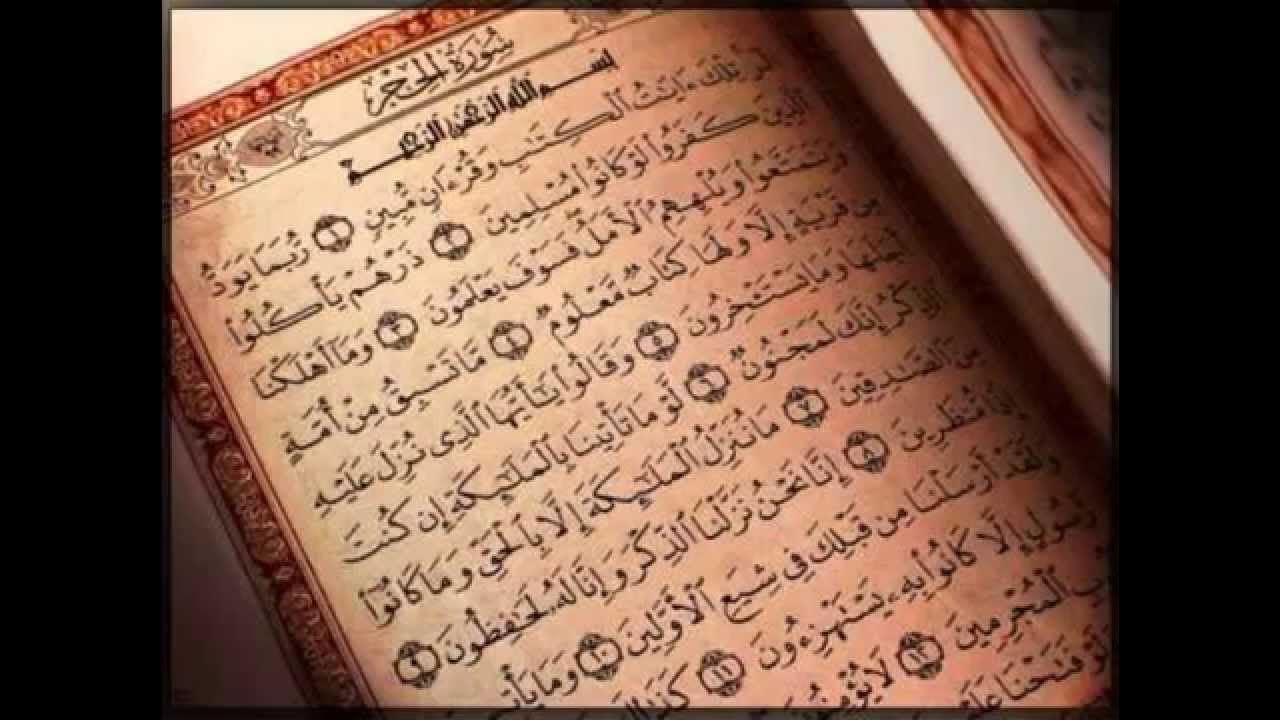 سُورَةُ الحِجْرِ
بِسْمِ اللَّهِ الرَّحْمَٰنِ الرَّحِيمِ
الٓر تِلْكَ ءَايَٰتُ ٱلْكِتَٰبِ وَقُرْءَانٍ مُّبِينٍ ١ رُّبَمَا يَوَدُّ
ٱلَّذِينَ كَفَرُوا۟ لَوْ كَانُوا۟ مُسْلِمِينَ ٢ ذَرْهُمْ يَأْكُلُوا۟
وَيَتَمَتَّعُوا۟ وَيُلْهِهِمُ ٱلْأَمَلُ فَسَوْفَ يَعْلَمُونَ ٣ وَمَآ أَهْلَكْنَا
مِن قَرْيَةٍ إِلَّا وَلَهَا كِتَابٌ مَّعْلُومٌ ٤ مَّا تَسْبِقُ مِنْ أُمَّةٍ
أَجَلَهَا وَمَا يَسْتَـْٔخِرُونَ ٥ وَقَالُوا۟ يَٰٓأَيُّهَا ٱلَّذِى نُزِّلَ عَلَيْهِ
ٱلذِّكْرُ إِنَّكَ لَمَجْنُونٌ ٦ لَّوْ مَا تَأْتِينَا بِٱلْمَلَٰٓئِكَةِ إِن كُنتَ
مِنَ ٱلصَّٰدِقِينَ ٧ مَا نُنَزِّلُ ٱلْمَلَٰٓئِكَةَ إِلَّا بِٱلْحَقِّ وَمَا كَانُوٓا۟
إِذًا مُّنظَرِينَ ٨ إِنَّا نَحْنُ نَزَّلْنَا ٱلذِّكْرَ وَإِنَّا لَهُۥ لَحَٰفِظُونَ ٩
وَلَقَدْ أَرْسَلْنَا مِن قَبْلِكَ فِى شِيَعِ ٱلْأَوَّلِينَ ١٠ وَمَا يَأْتِ
رَّسُولٍ إِلَّا كَانُوا۟ بِهِۦ يَسْتَهْزِءُونَ ١١ كَذَٰلِ
ٱلْمُجْرِمِينَ ١٢ لَا يُؤْمِنُونَ
وَلَوْ فَتَحْنَا عَلَيْ